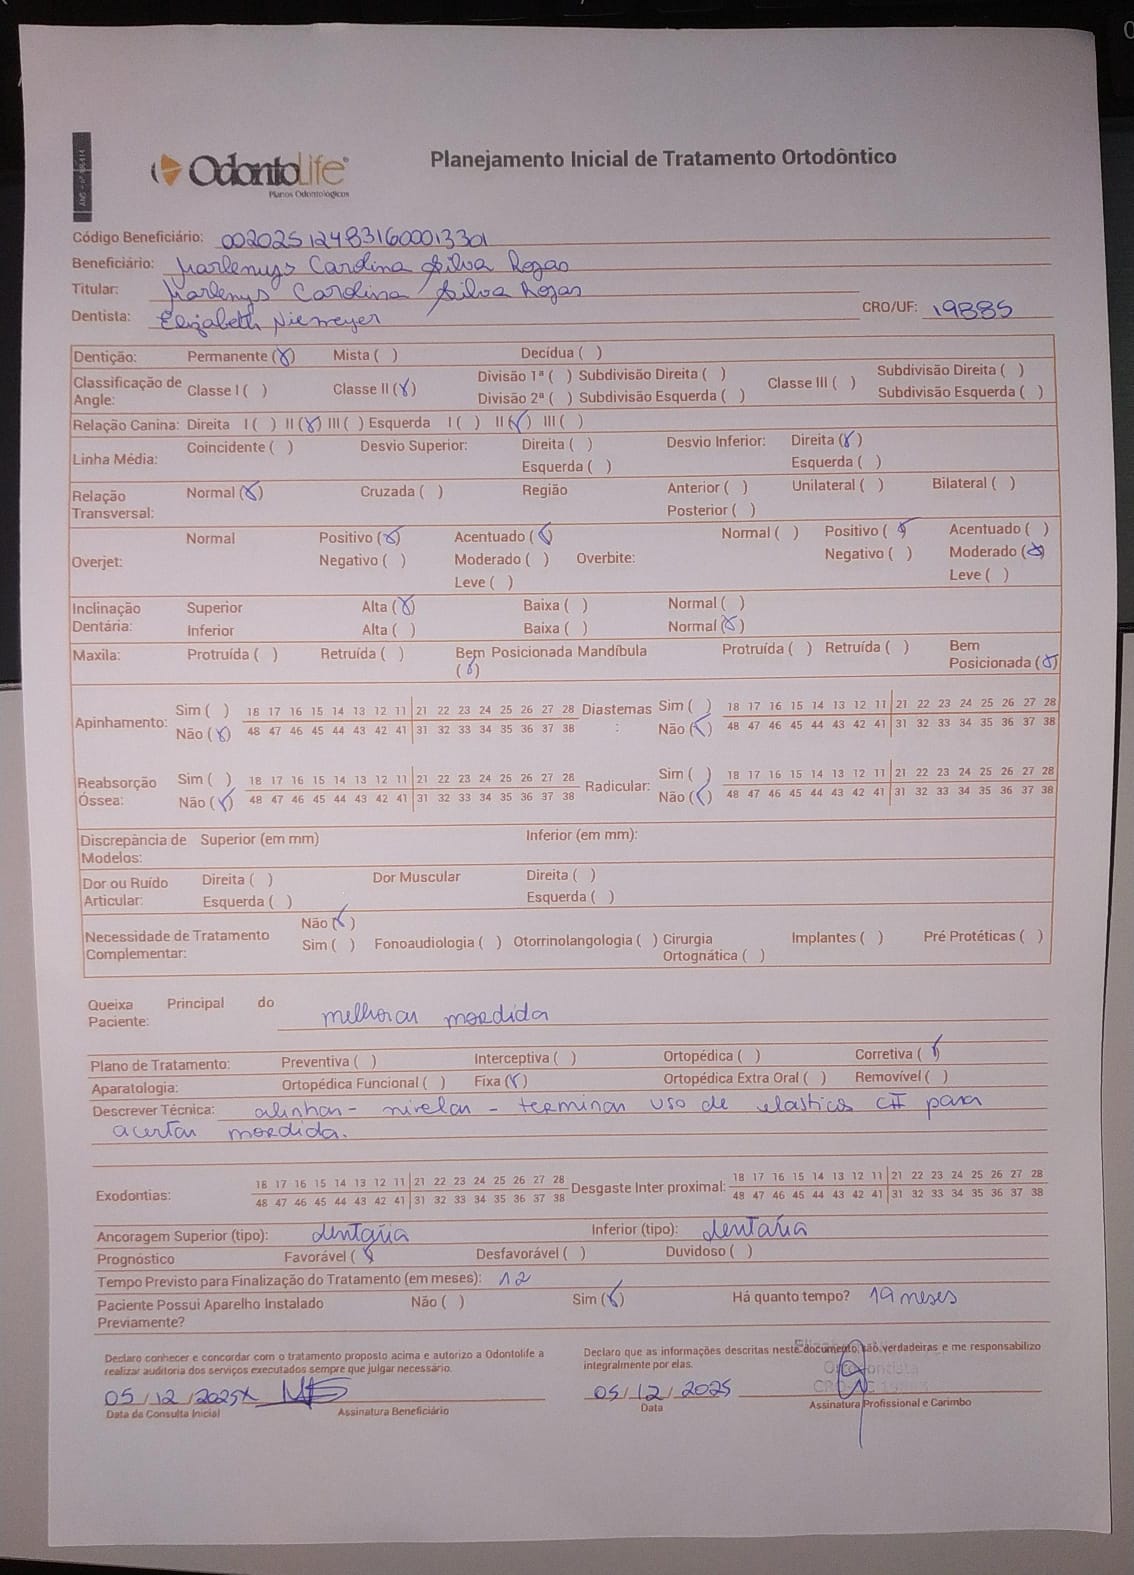 OdontoLife
Planos Odontológicos
Planejamento Inicial de Tratamento Ortodôntico
Código Beneficiário: 002025124831600013301
Beneficiário: Marlenys Carolina Silva Rojas
Titular: Marlenys Carolina Silva Rojas
Dentista: Elizabeth Niemeyer CRO/UF: 19885
Dentição: Permanente (X) Mista ( ) Decídua ( )
Classificação de Angle: Classe I ( ) Classe II (X) Divisão 1ª ( ) Subdivisão Direita ( ) Classe III ( ) Subdivisão Direita ( )
Divisão 2ª ( ) Subdivisão Esquerda ( ) Subdivisão Esquerda ( )
Relação Canina: Direita I ( ) II (X) III ( ) Esquerda I ( ) II (X) III ( )
Linha Média: Coincidente ( ) Desvio Superior: Direita ( ) Desvio Inferior: Direita (X)
Esquerda ( ) Esquerda ( )
Relação Transversal: Normal (X) Cruzada ( ) Região Anterior ( ) Unilateral ( ) Bilateral ( )
Posterior ( )
Overjet: Normal Positivo (X) Acentuado (X) Overbite: Normal ( ) Positivo (X) Acentuado ( )
Negativo ( ) Moderado ( ) Negativo ( ) Moderado (X)
Leve ( ) Leve ( )
Inclinação Dentária: Superior Alta (X) Baixa ( ) Normal ( )
Inferior Alta ( ) Baixa ( ) Normal (X)
Maxila: Protruída ( ) Retruída ( ) Bem Posicionada (X) Mandíbula Protruída ( ) Retruída ( ) Bem Posicionada (X)
Apinhamento: Sim ( ) 18 17 16 15 14 13 12 11 21 22 23 24 25 26 27 28 Diastemas: Sim ( ) 18 17 16 15 14 13 12 11 21 22 23 24 25 26 27 28
Não (X) 48 47 46 45 44 43 42 41 31 32 33 34 35 36 37 38 Não (X) 48 47 46 45 44 43 42 41 31 32 33 34 35 36 37 38
Reabsorção Óssea: Sim ( ) 18 17 16 15 14 13 12 11 21 22 23 24 25 26 27 28 Radicular: Sim ( ) 18 17 16 15 14 13 12 11 21 22 23 24 25 26 27 28
Não (X) 48 47 46 45 44 43 42 41 31 32 33 34 35 36 37 38 Não (X) 48 47 46 45 44 43 42 41 31 32 33 34 35 36 37 38
Discrepância de Modelos: Superior (em mm) Inferior (em mm):
Dor ou Ruído Articular: Direita ( ) Dor Muscular Direita ( )
Esquerda ( ) Esquerda ( )
Necessidade de Tratamento Complementar: Não (X)
Sim ( ) Fonoaudiologia ( ) Otorrinolangologia ( ) Cirurgia Ortognática ( ) Implantes ( ) Pré Protéticas ( )
Queixa Principal do Paciente: melhorar mordida
Plano de Tratamento: Preventiva ( ) Interceptiva ( ) Ortopédica ( ) Corretiva (X)
Aparatologia: Ortopédica Funcional ( ) Fixa (X) Ortopédica Extra Oral ( ) Removível ( )
Descrever Técnica: alinhar - nivelar - terminar uso de elasticos CII para
acertar mordida.
Exodontias: 18 17 16 15 14 13 12 11 21 22 23 24 25 26 27 28 Desgaste Inter proximal: 18 17 16 15 14 13 12 11 21 22 23 24 25 26 27 28
48 47 46 45 44 43 42 41 31 32 33 34 35 36 37 38 48 47 46 45 44 43 42 41 31 32 33 34 35 36 37 38
Ancoragem Superior (tipo): dentária Inferior (tipo): dentária
Prognóstico Favorável (X) Desfavorável ( ) Duvidoso ( )
Tempo Previsto para Finalização do Tratamento (em meses): 12
Paciente Possui Aparelho Instalado Previamente? Não ( ) Sim (X) Há quanto tempo? 19 meses
Declaro conhecer e concordar com o tratamento proposto acima e autorizo a Odontolife a Declaro que as informações descritas neste documento, são verdadeiras e me responsabilizo
realizar auditoria dos serviços executados sempre que julgar necessário. integralmente por elas.
05/12/2025 05/12/2025
Data da Consulta Inicial Assinatura Beneficiário Data Assinatura Profissional e Carimbo